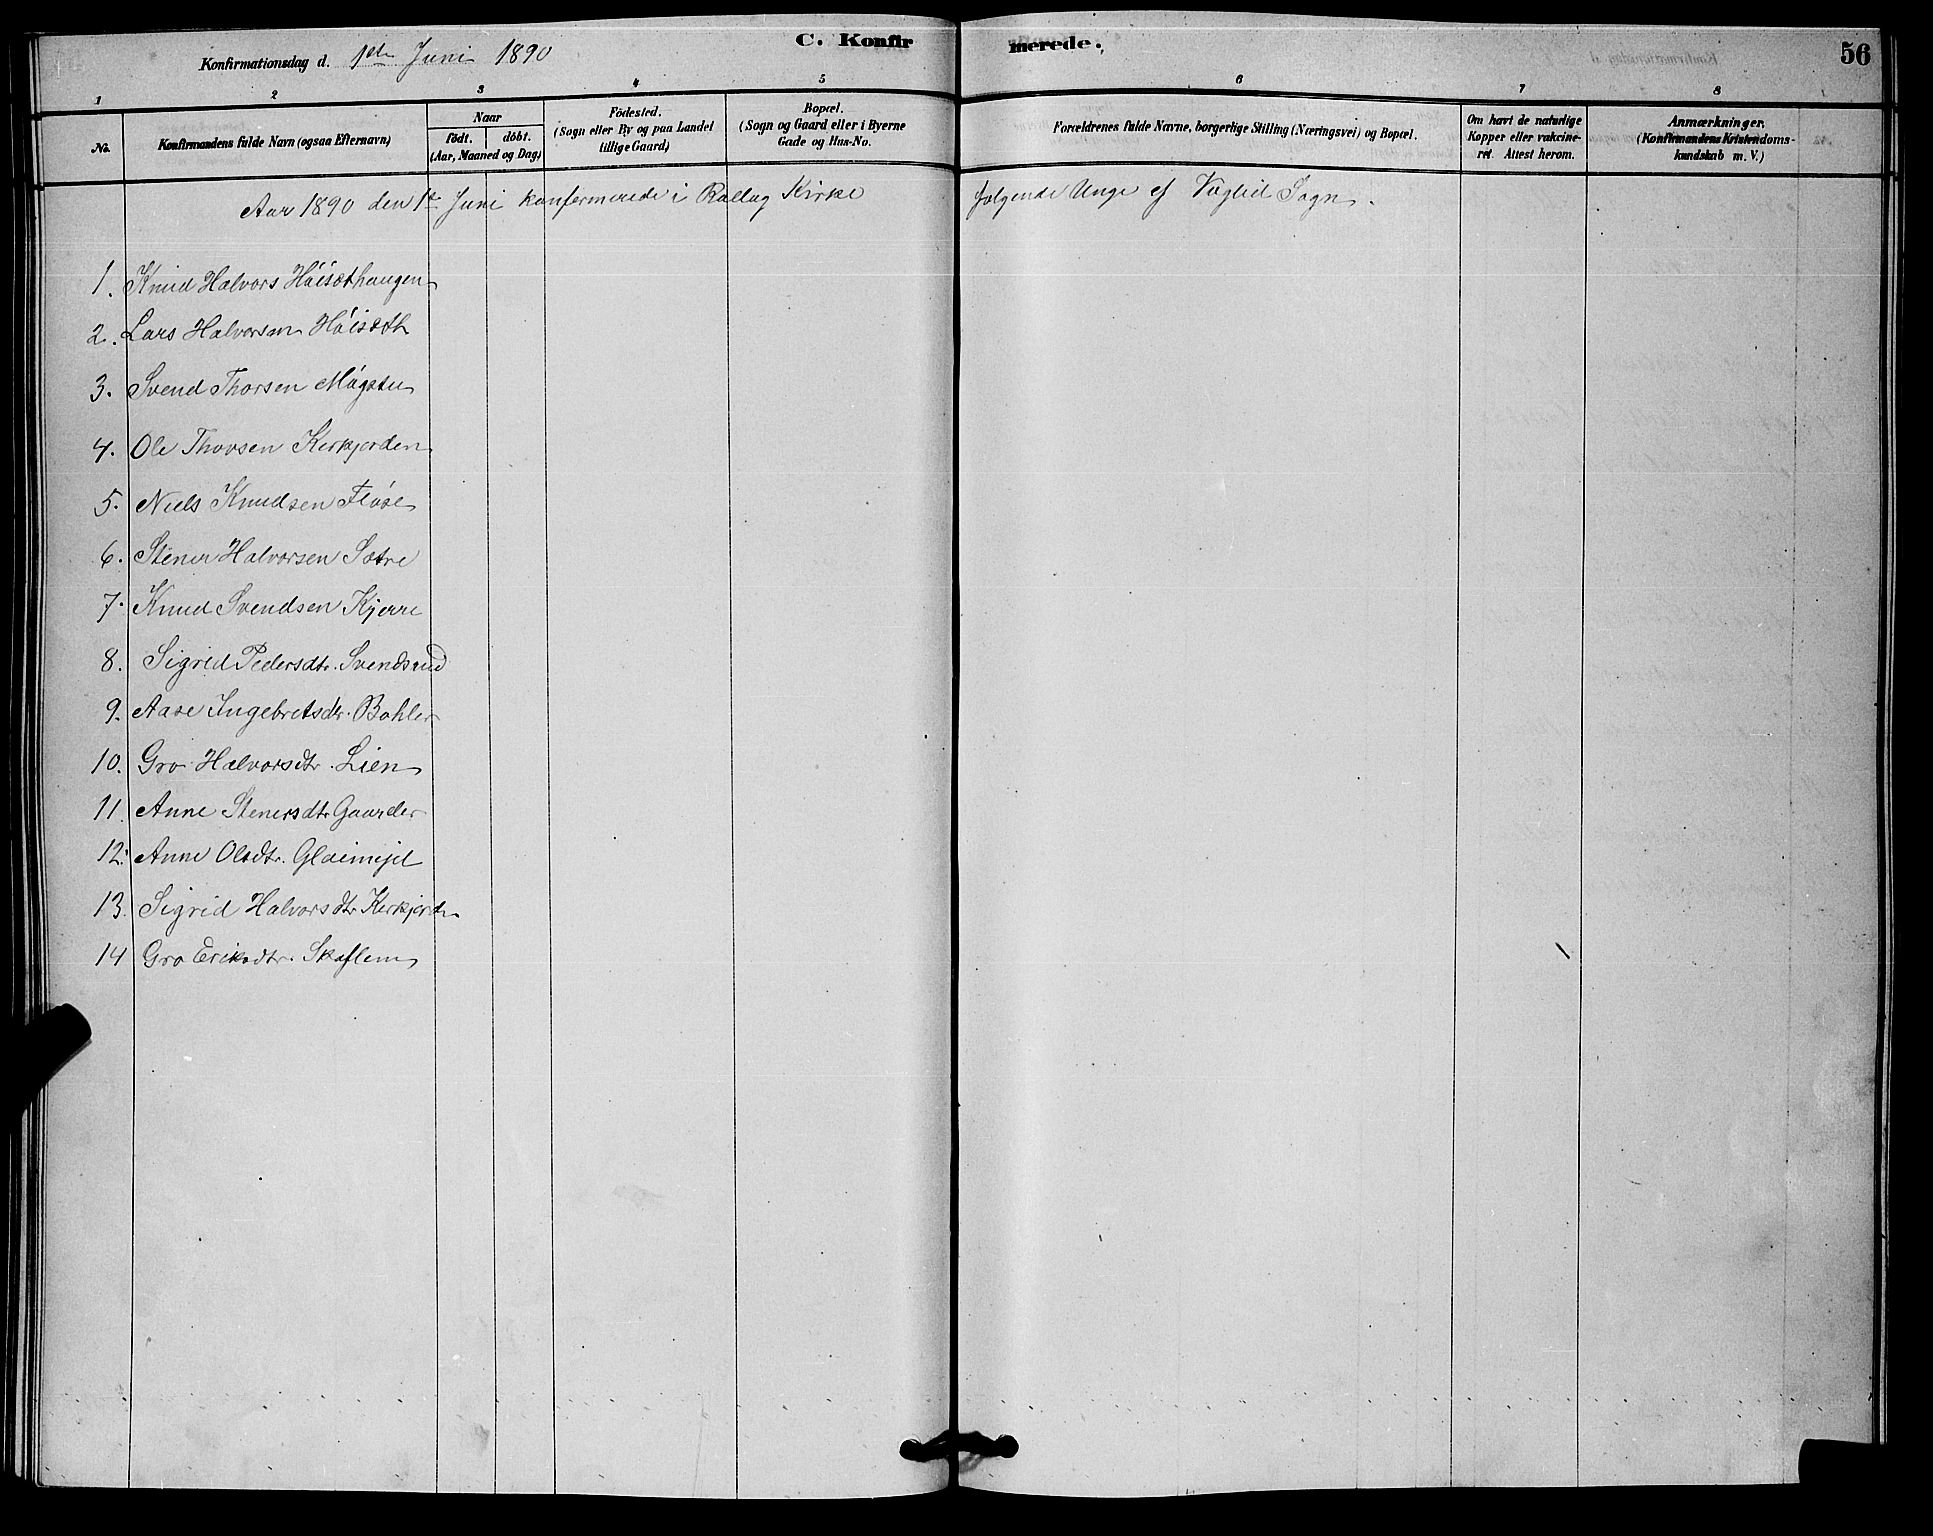 C. Konfirmerede. 56
Konfirmationsdag d. 1ste Juni 1890
1 2 3 4 5 6 7 8
No.
Konfirmandens fulde Navn (ogsaa Efternavn)
Naar
födt. döbt.
(Aar, Maaned og Dag)
Födested.
(Sogn eller By og paa Landet
tillige Gaard)
Bopæl.
(Sogn og Gaard eller i Byerne
Gade og Hus-No.
Forældrenes fulde Navne, borgerlige Stilling (Næringsvei) og Bopæl.
Om havt de naturlige
Kopper eller vakcine-
ret. Attest herom.
Anmærkninger.
(Konfirmandens Kristendoms-
kundskab m. V.)
Aar 1890 den 1te Juni konfermerede i Rollag Kirke følgende Unge af Væglid Sogn.
1. Knud Halvors Höisæthaugen
2. Lars Halvorsen Höisæth
3. Svend Thorsen Mógstu
4. Ole Thovsen Kerkjorden
5. Niels Knudsen Flóse
6. Stener Halvorsen Sætre
7. Knud Svendsen Kjerre
8. Sigrid Pedersdtr. Svendsrud
9. Aase Ingebretsdtr. Bohler
10. Gro Halvorsdtr. Lien
11. Anne Stenersdtr Gaarder
12. Anne Olsdtr.
13. Sigrid Halvorsdtr Kerkjorden
14 Gro Eriksdtr. Skaflem